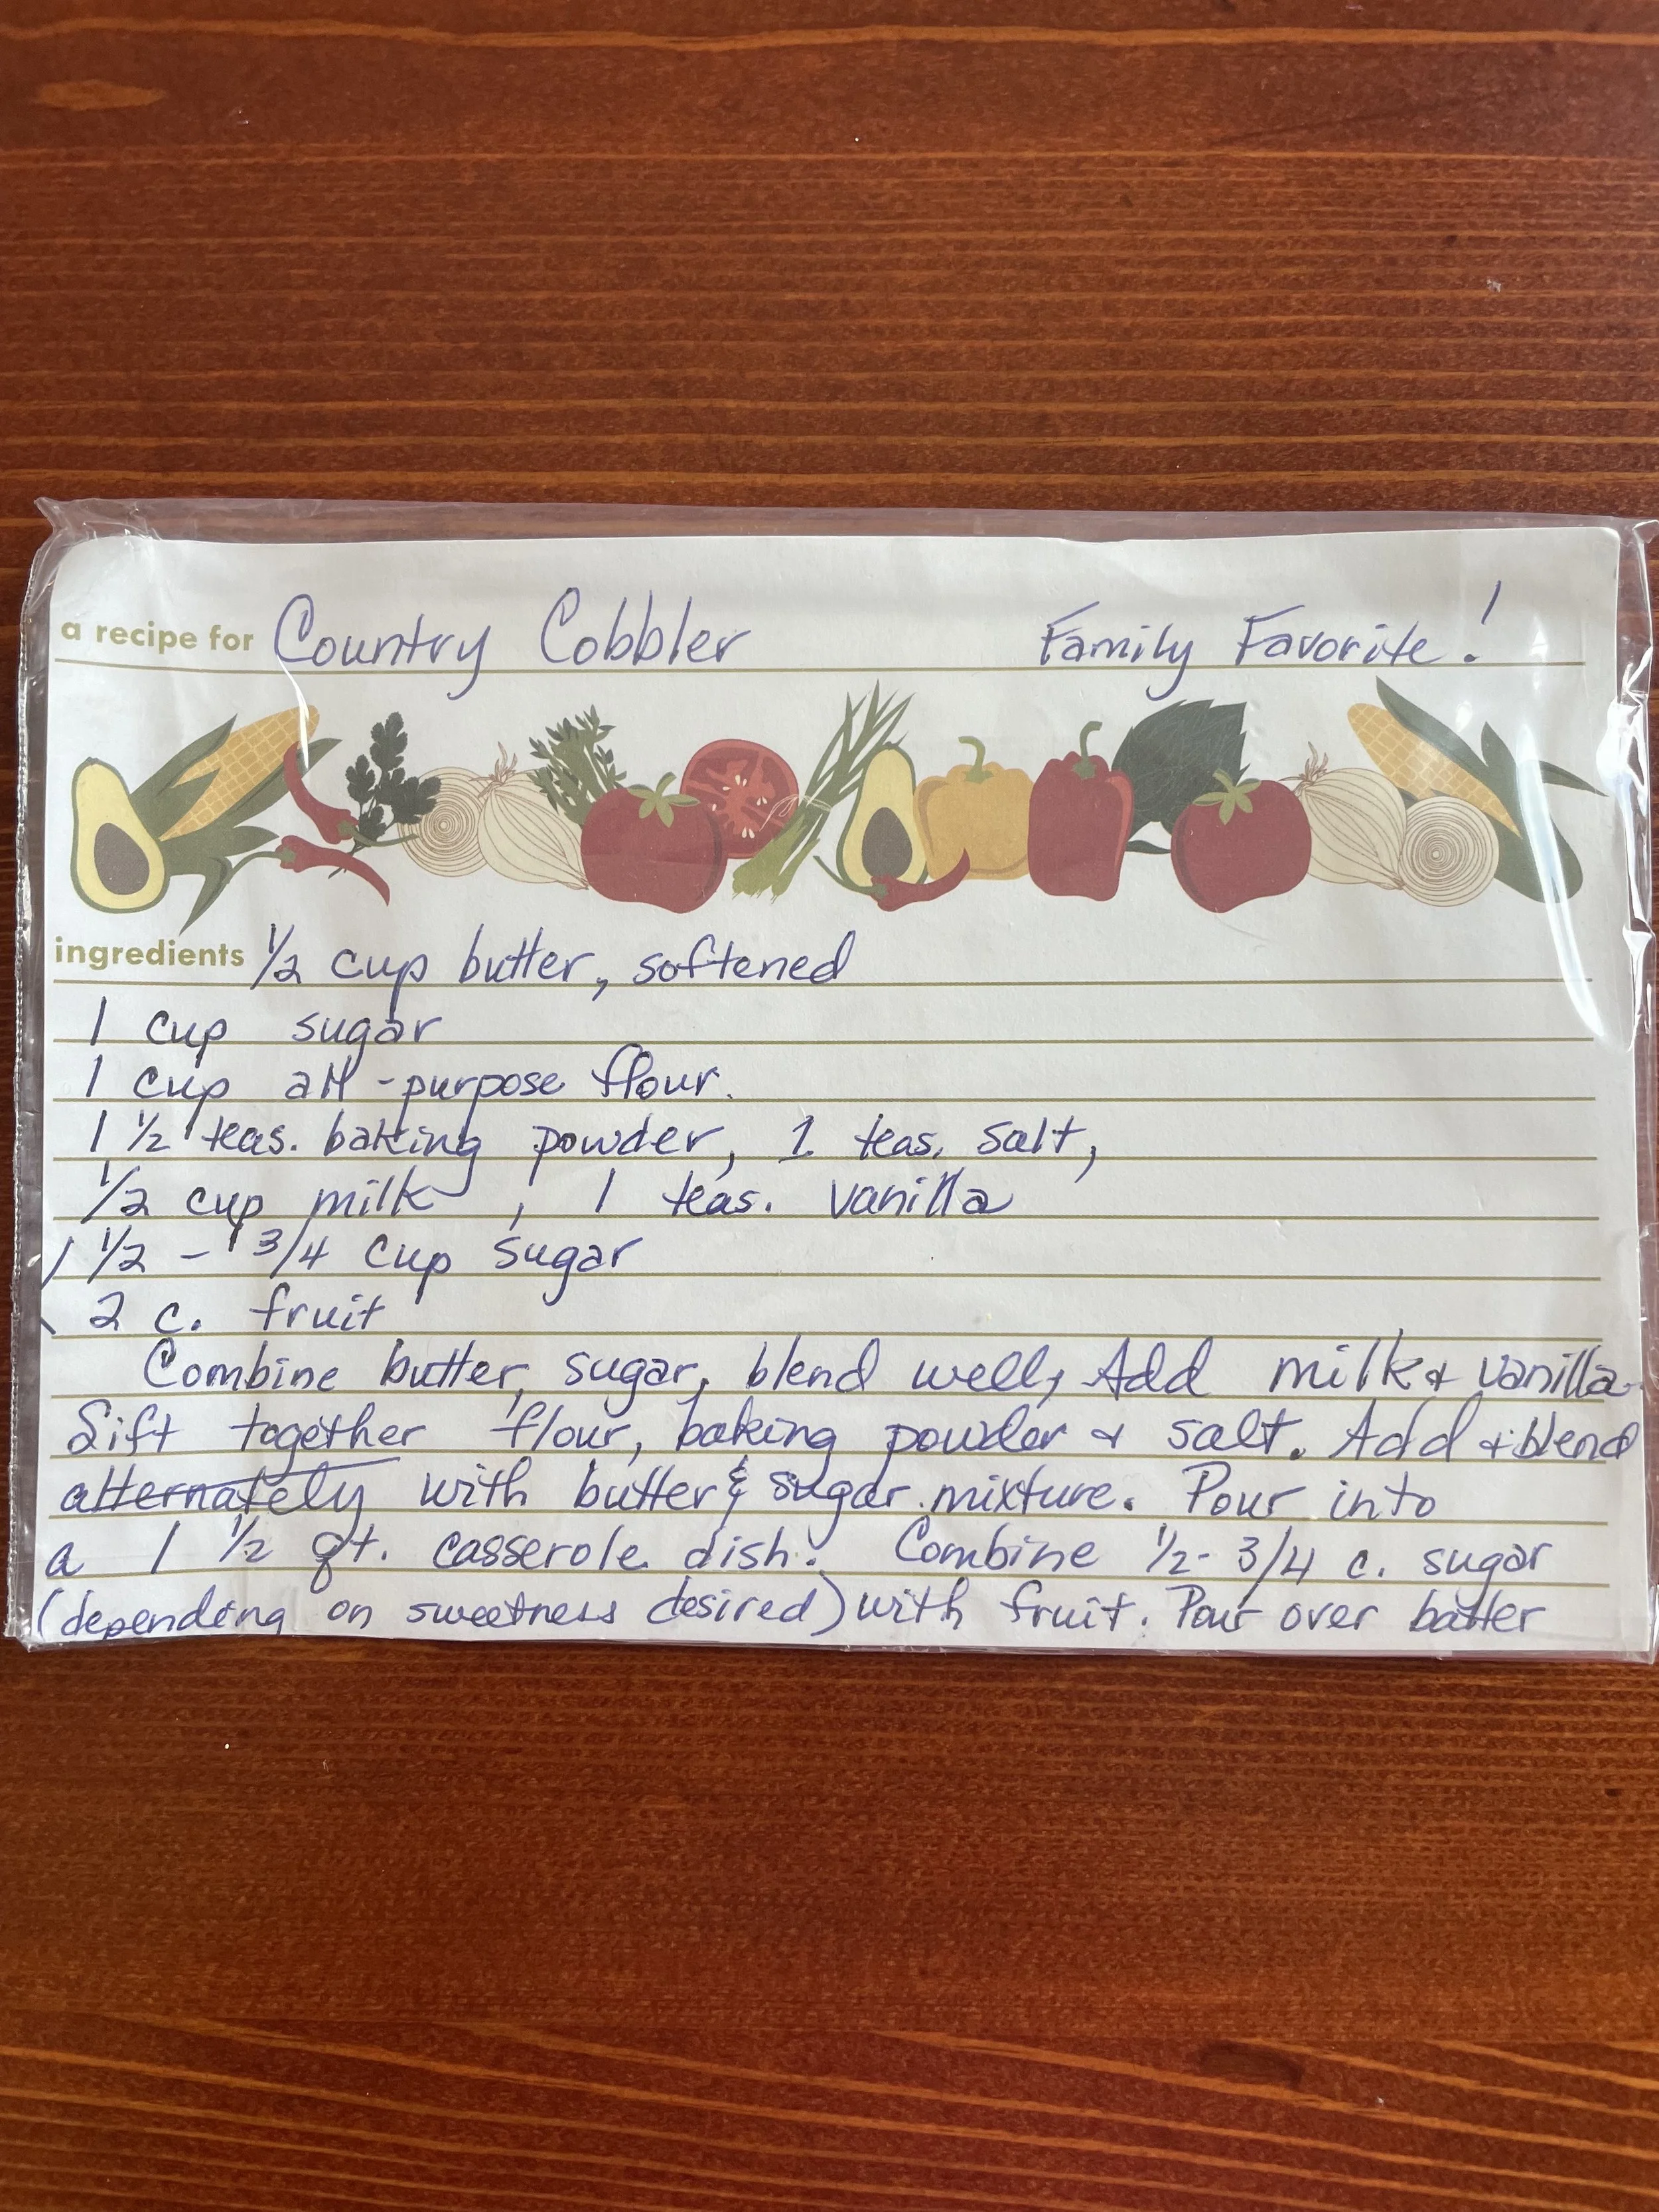 a recipe for Country Cobbler Family Favorite!
ingredients 1/2 cup butter, softened
1 cup sugar
1 cup all-purpose flour.
1 1/2 teas. baking powder, 1 teas. salt,
1/2 cup milk, 1 teas. vanilla
1/2 - 3/4 cup sugar
2 c. fruit
Combine butter, sugar, blend well, Add milk & vanilla.
Sift together flour, baking powder & salt. Add & blend
alternately with butter & sugar mixture. Pour into
a 1 1/2 qt. casserole dish. Combine 1/2 - 3/4 c. sugar
(depending on sweetness desired) with fruit. Pour over batter